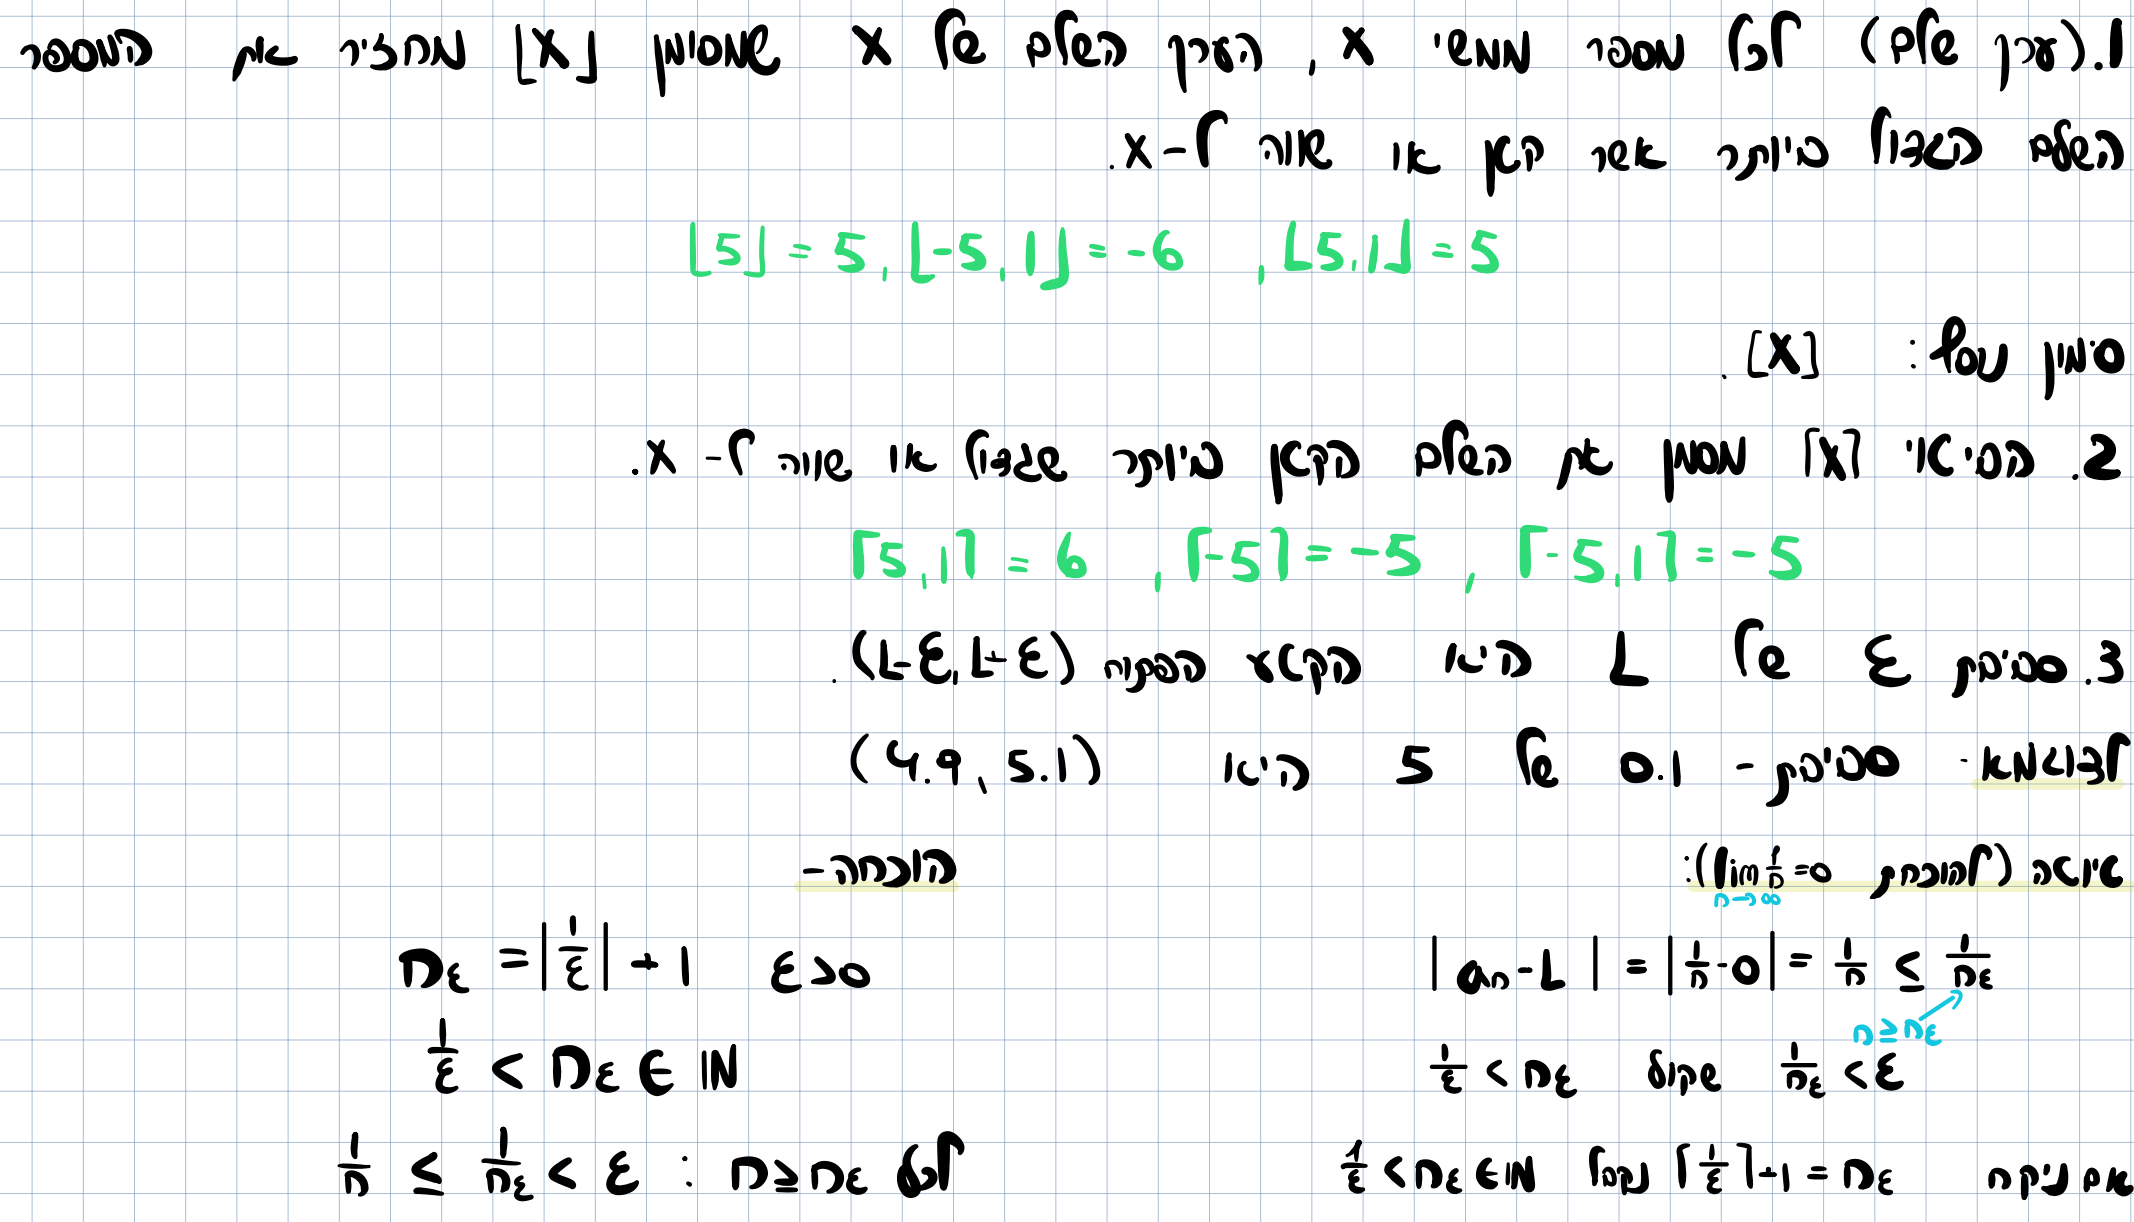 1. (ערך שלם) לכל מספר ממשי x, הערך השלם של x שמסומן ⌊x⌋ מחזיר את המספר
השלם הגדול ביותר אשר קטן או שווה ל-x.
⌊5⌋ = 5, ⌊-5,1⌋ = -6 , ⌊5,1⌋ = 5
סימון נוסף: [x].
2. הביטוי ⌈x⌉ מסמן את השלם הקטן ביותר שגדול או שווה ל-x.
⌈5,1⌉ = 6 , ⌈-5⌉ = -5 , ⌈-5,1⌉ = -5
3. סביבת ε של L היא הקטע הפתוח (L-ε, L+ε).
לדוגמא - סביבת - 0.1 של 5 היא (4.9, 5.1)
טיוטה (להוכחת lim 1/n = 0):
n→∞
|an - L| = |1/n - 0| = 1/n ≤ 1/nε
n≥nε
1/nε < ε שקול 1/ε < nε
אם ניקח nε = ⌈1/ε⌉+1 נקבל 1/ε < nε ∈ ℕ
הוכחה-
ε>0 nε = |1/ε| + 1
1/ε < nε ∈ ℕ
לכל n≥nε : 1/n ≤ 1/nε < ε